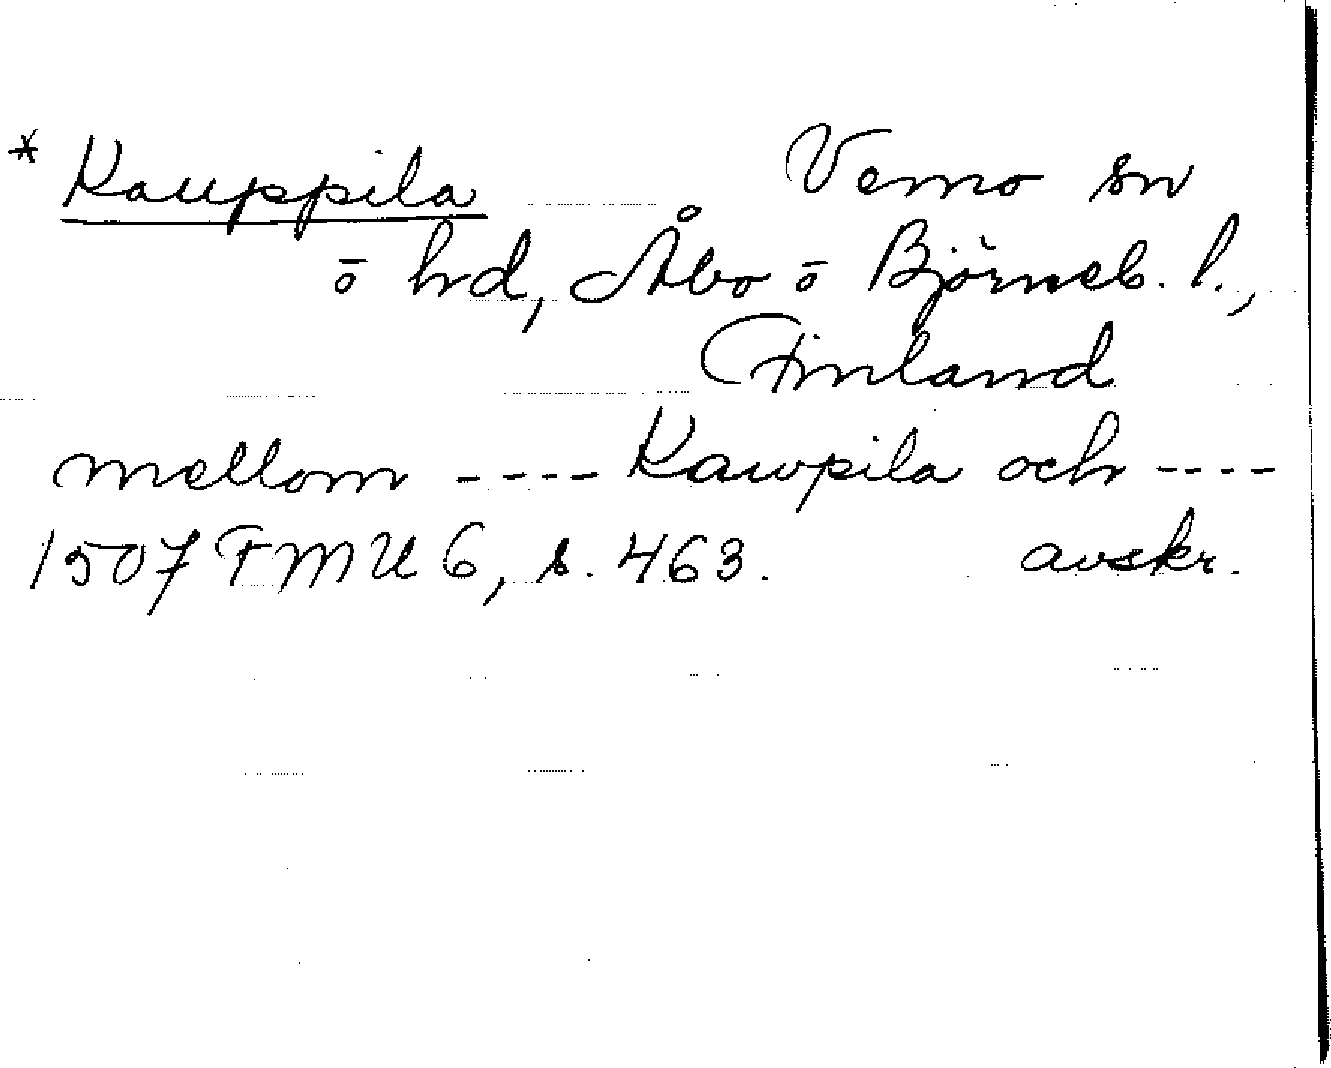 * Kauppila Vemo sn
ō hd, Åbo ō Björneb. l.,
Finland
mellom ---- Kawpila och ----
1507 FMU 6, s. 463. avskr.